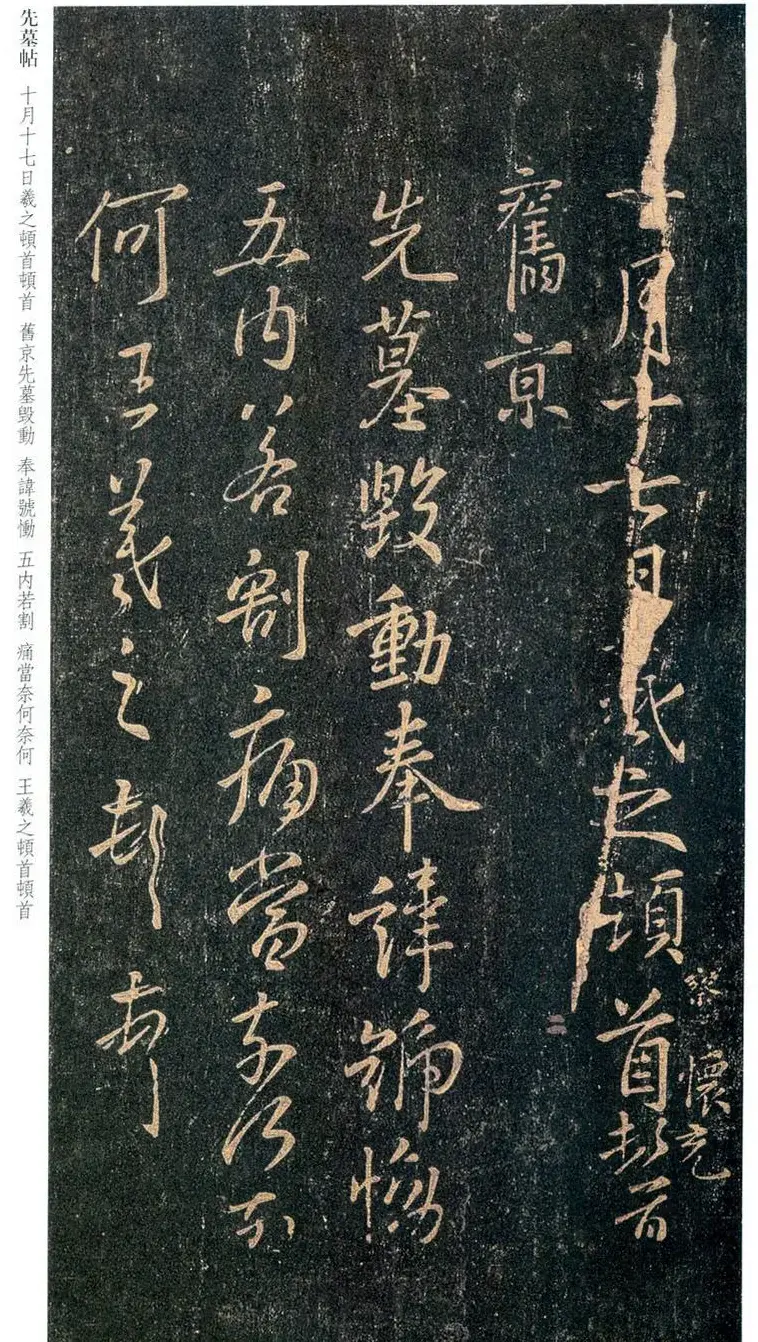 察 懷充
十月十七日羲之頓首頓首
舊京
先墓毀動奉諱號慟
五內若割痛當奈何奈
何王羲之頓首頓首
先墓帖 十月十七日羲之頓首頓首 舊京先墓毀動 奉諱號慟 五内若割 痛當奈何奈何 王羲之頓首頓首